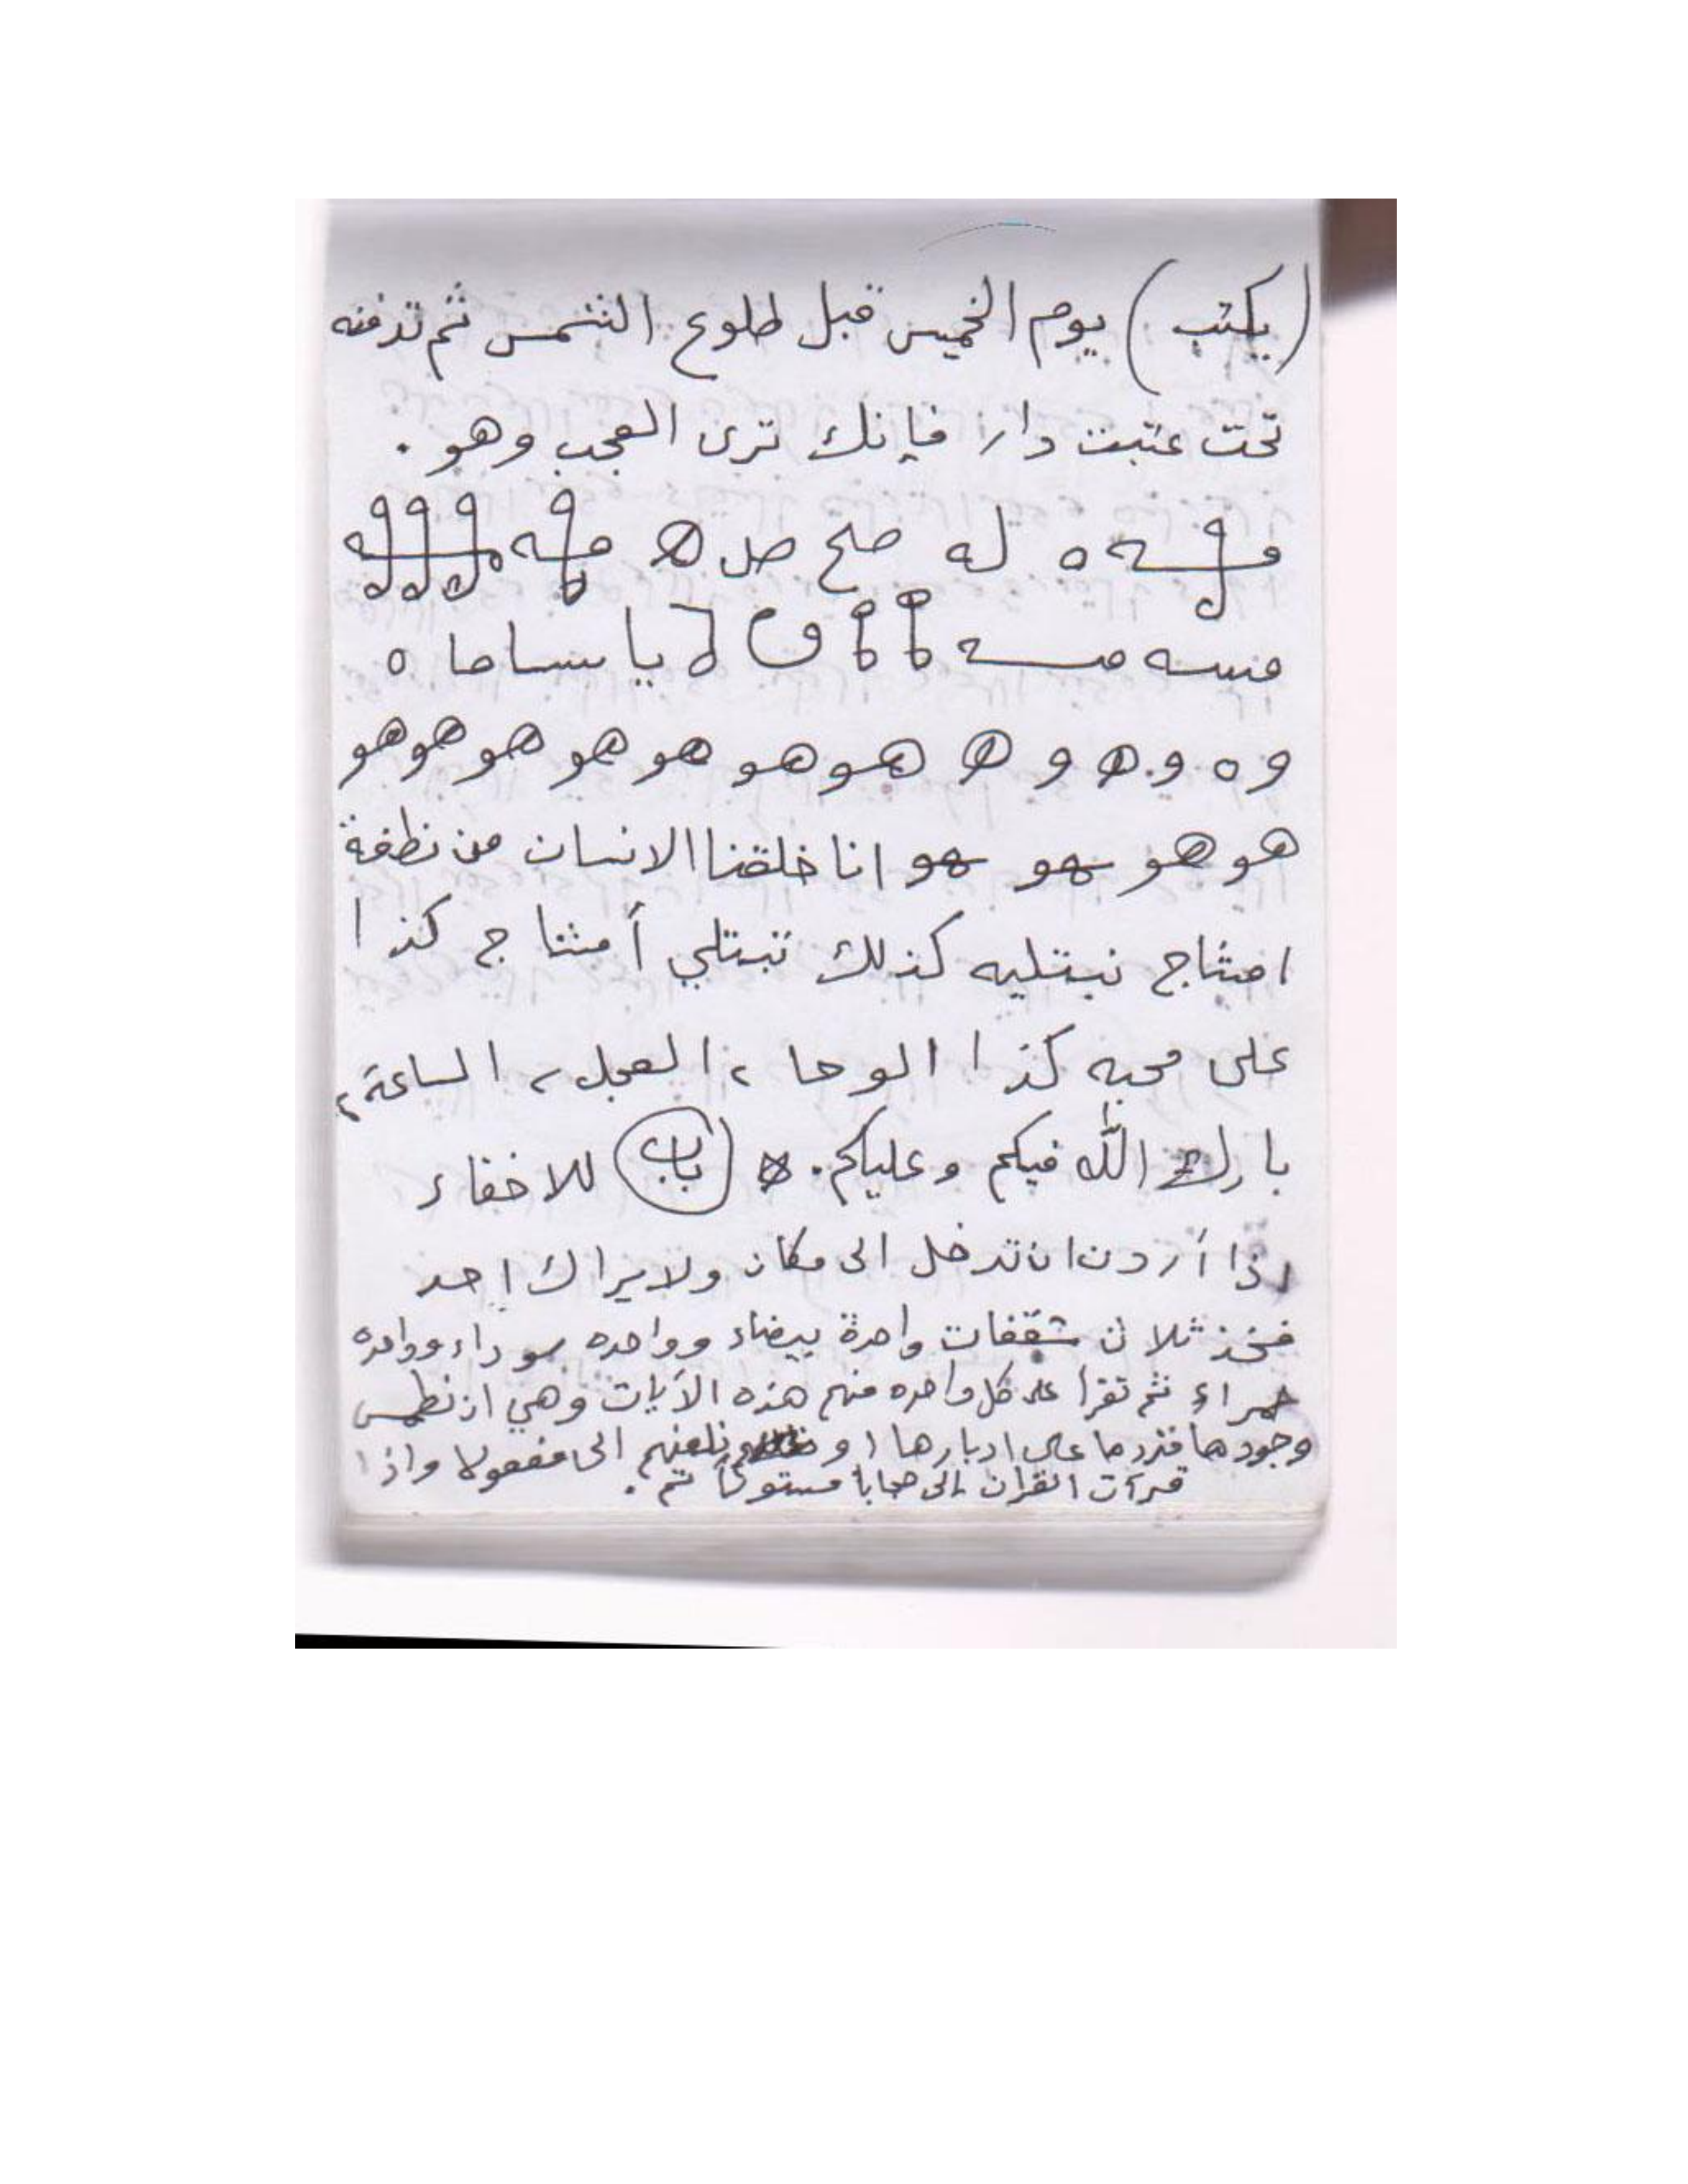 (يكتب) يوم الخميس قبل طلوع الشمس ثم تدفنه
تحت عتبت دار فإنك ترى العجب وهو .
ه له صلح صل ه
يا
وه و ه و ه هو هو هو هو هو هو هو
هو هو هو هو انا خلقنا الانسان من نطفة
امشاج نبتليه كذلك تبتلي أمشاج كذا
على محبه كذا الوحا ٢ العجل ٢ الساعة ٢
بارك الله فيكم وعليكم . ه (باب) للاخفاء
إذا أردت ان تدخل الى مكان ولا يراك احد
فخذ ثلاث شقفات واحدة بيضاء وواحده سوداء وواحده
حمراء ثم تقرأ على كل واحده منهم هذه الآيات وهي ان نطمس
وجودها فنردها على ادبارها او نلعنهم الى مفعولا واذا
قرآت القران إلى حجابا مستوراً تم .